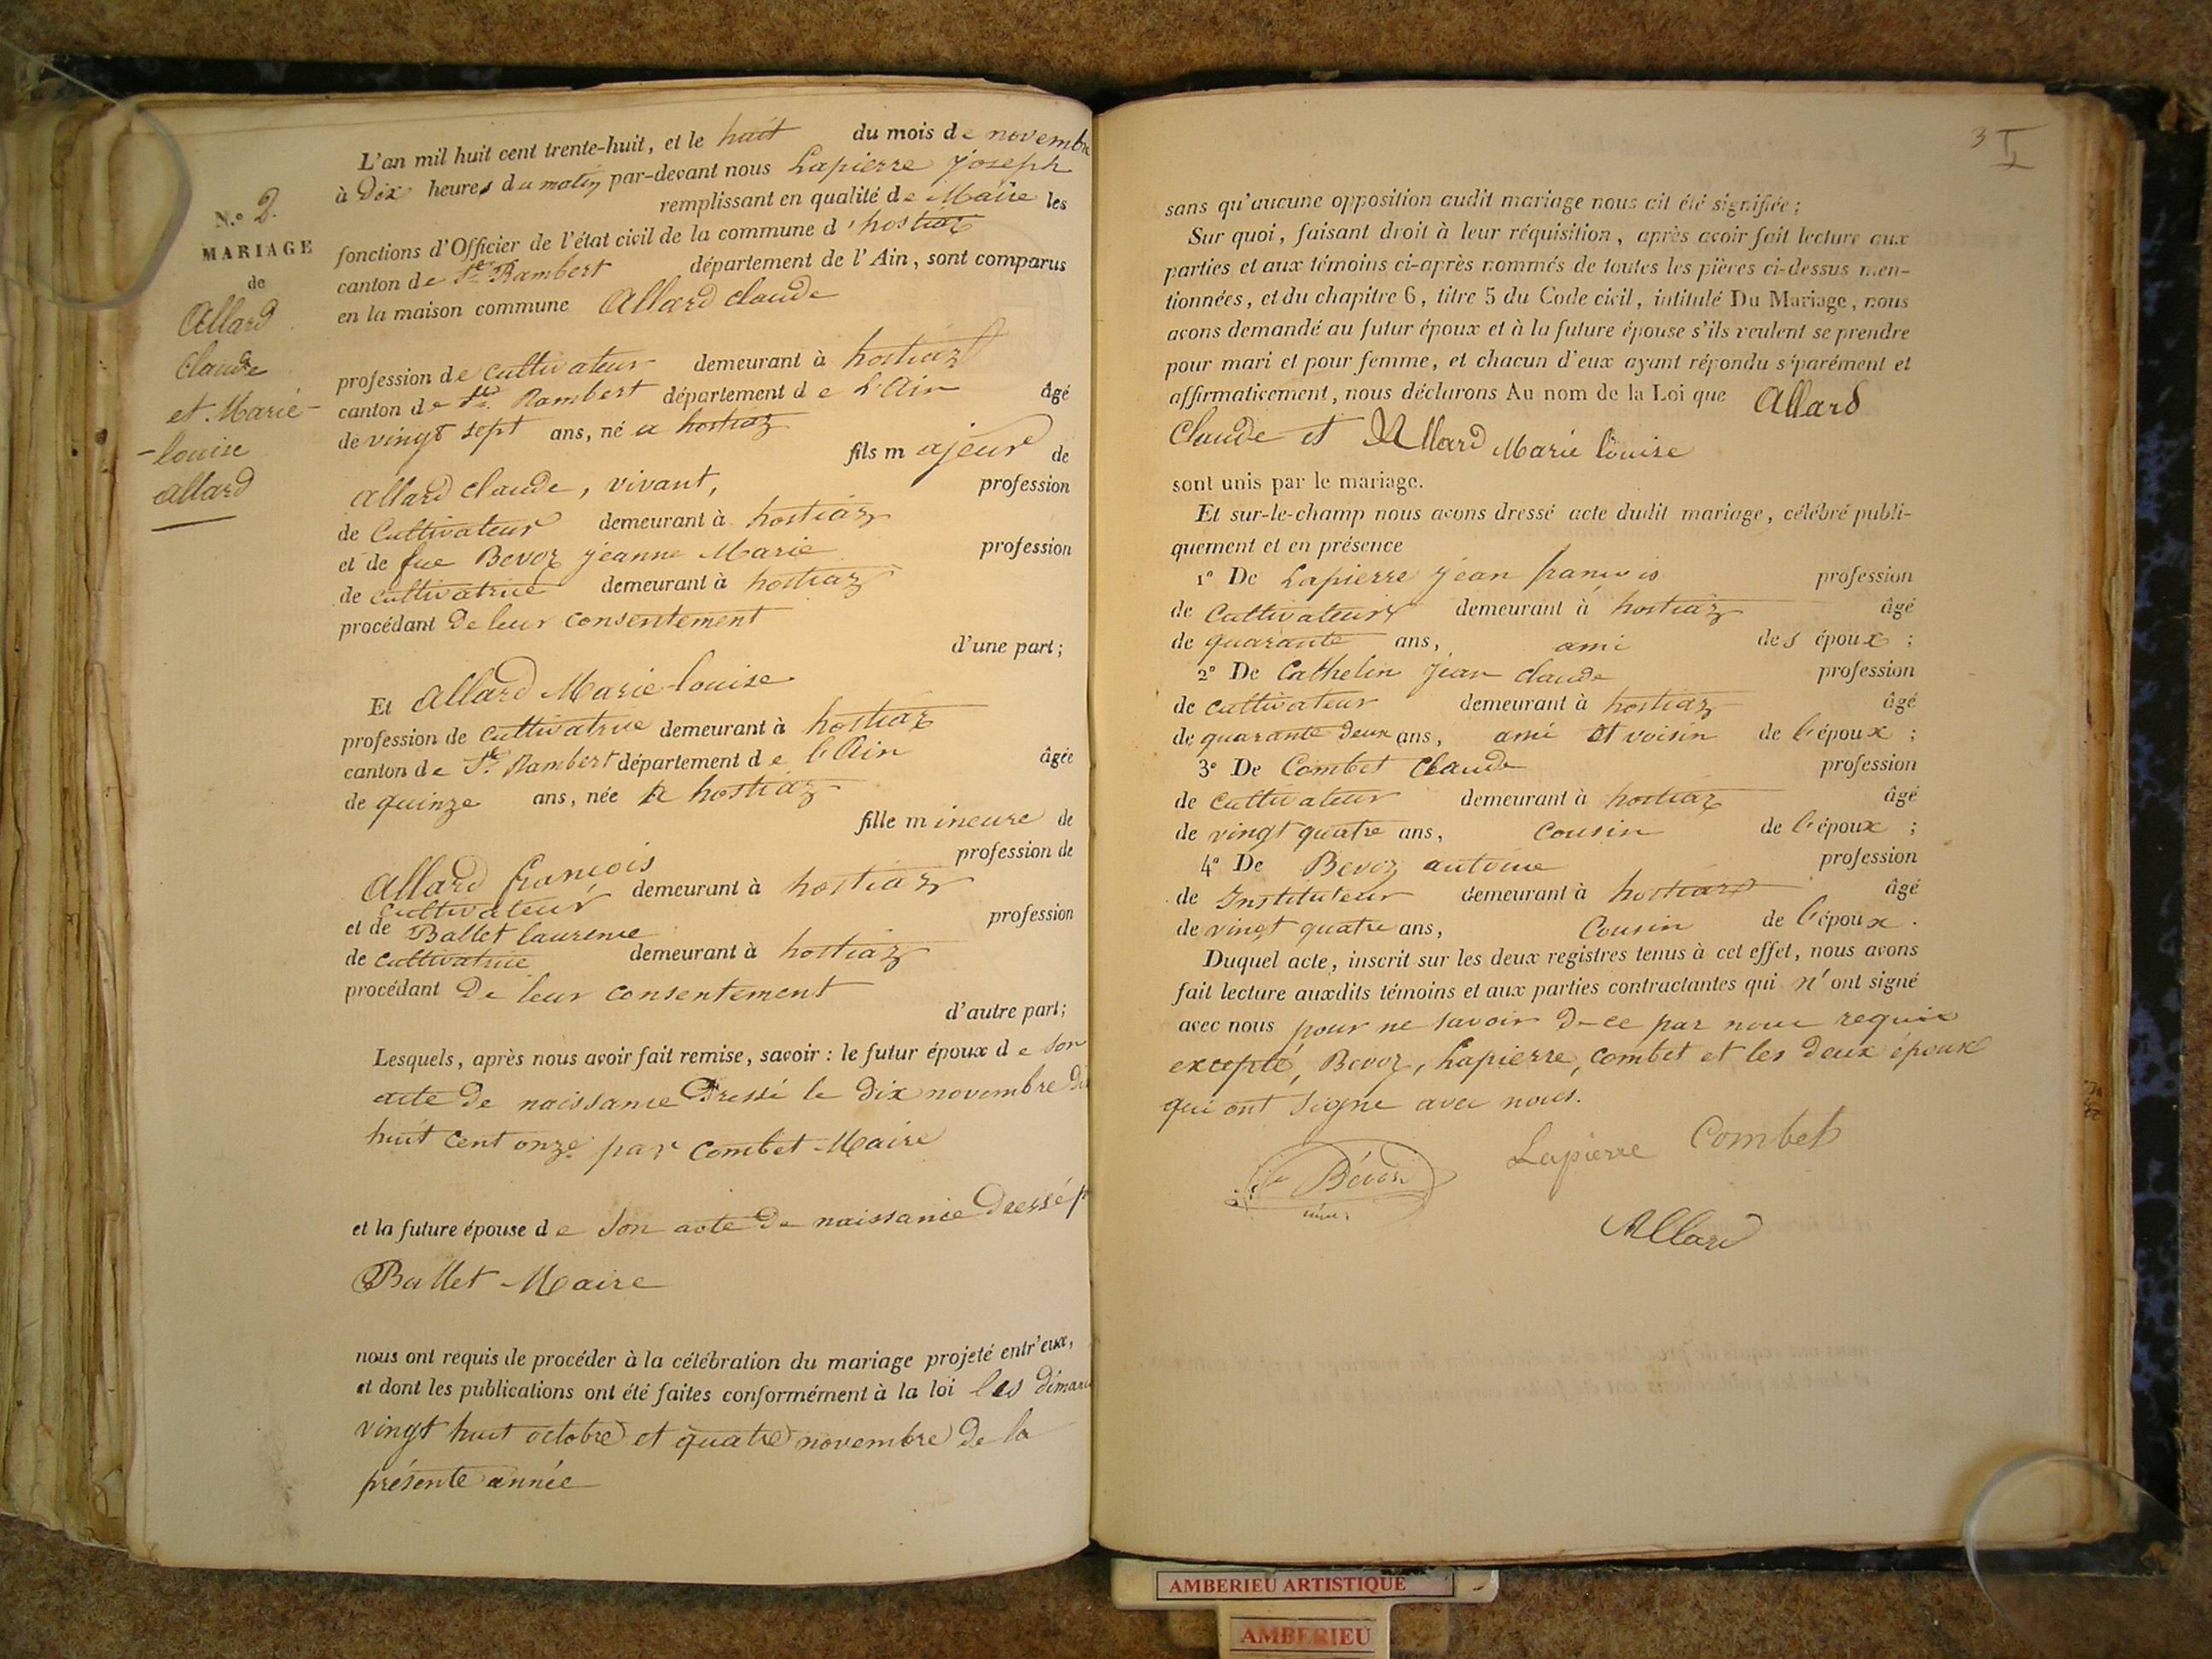 N.o 2.
MARIAGE
de
Allard
Claude
et Marie-
-louise
allard
L'an mil huit cent trente-huit, et le huit du mois de novembre
à Dix heures du matin par-devant nous Lapierre Joseph
remplissant en qualité de Maire les
fonctions d'Officier de l'état civil de la commune d'hostiaz
canton de St Rambert département de l'Ain, sont comparus
en la maison commune Allard claude
profession de cultivateur demeurant à hostiaz
canton de St Rambert département de L'Ain âgé
de vingt sept ans, né a hostiaz
fils majeur de
allard claude, vivant, profession
de Cultivateur demeurant à hostiaz
et de fue Bevoz jeanne Marie profession
de cultivatrice demeurant à hostiaz
procédant de leur consentement
d'une part;
Et allard Marie-louise
profession de cultivatrice demeurant à hostiaz
canton de St Rambert département de l'Ain âgée
de quinze ans, née a hostiaz
fille mineure de
profession de
Allard françois
cultivateur demeurant à hostiaz
et de Ballet laurence profession
de cultivatrice demeurant à hostiaz
procédant De leur consentement
d'autre part;
Lesquels, après nous avoir fait remise, savoir : le futur époux de son
acte de naissance Dressé le dix novembre
huit cent onze par Combet Maire
et la future épouse de son acte de naissance dressé
Ballet Maire
nous ont requis de procéder à la célébration du mariage projeté entr'eux,
et dont les publications ont été faites conformément à la loi les
vingt huit octobre et quatre novembre de la
présente année
3
sans qu'aucune opposition audit mariage nous ait été signifiée;
Sur quoi, faisant droit à leur réquisition, après avoir fait lecture aux
parties et aux témoins ci-après nommés de toutes les pièces ci-dessus men-
tionnées, et du chapitre 6, titre 5 du Code civil, intitulé Du Mariage, nous
avons demandé au futur époux et à la future épouse s'ils veulent se prendre
pour mari et pour femme, et chacun d'eux ayant répondu séparément et
affirmativement, nous déclarons Au nom de la Loi que Allard
Claude et Allard Marie louise
sont unis par le mariage.
Et sur-le-champ nous avons dressé acte dudit mariage, célébré publi-
quement et en présence
1° De Lapierre jean françois profession
de Cultivateur demeurant à hostiaz âgé
de quarante ans, ami des époux ;
2° De Cathelin jean claude profession
de cultivateur demeurant à hostiaz âgé
de quarante deux ans, ami et voisin de l'époux ;
3° De Combet Claude profession
de cultivateur demeurant à hostiaz âgé
de vingt quatre ans, cousin de l'époux ;
4° De Bevoz antoine profession
de Instituteur demeurant à hostiaz âgé
de vingt quatre ans, Cousin de l'époux.
Duquel acte, inscrit sur les deux registres tenus à cet effet, nous avons
fait lecture auxdits témoins et aux parties contractantes qui n'ont signé
avec nous pour ne savoir de ce par nous requis
excepté, Bevoz, Lapierre, Combet et les deux époux
qui ont signé avec nous.
Lapierre Combet
Bévoz
Allard
AMBERIEU ARTISTIQUE
AMBERIEU